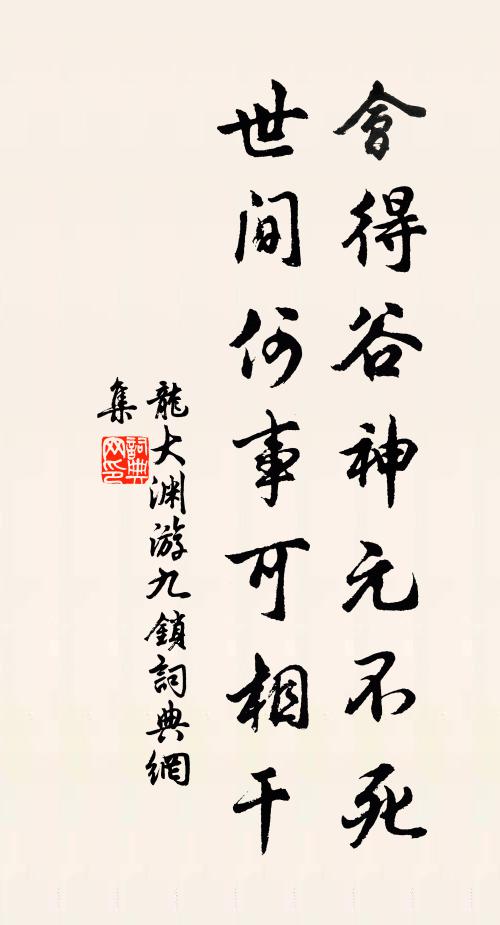 會得谷神元不死
世间何事可相干
龍大渊游九鎖詞典網
集
詞典网印